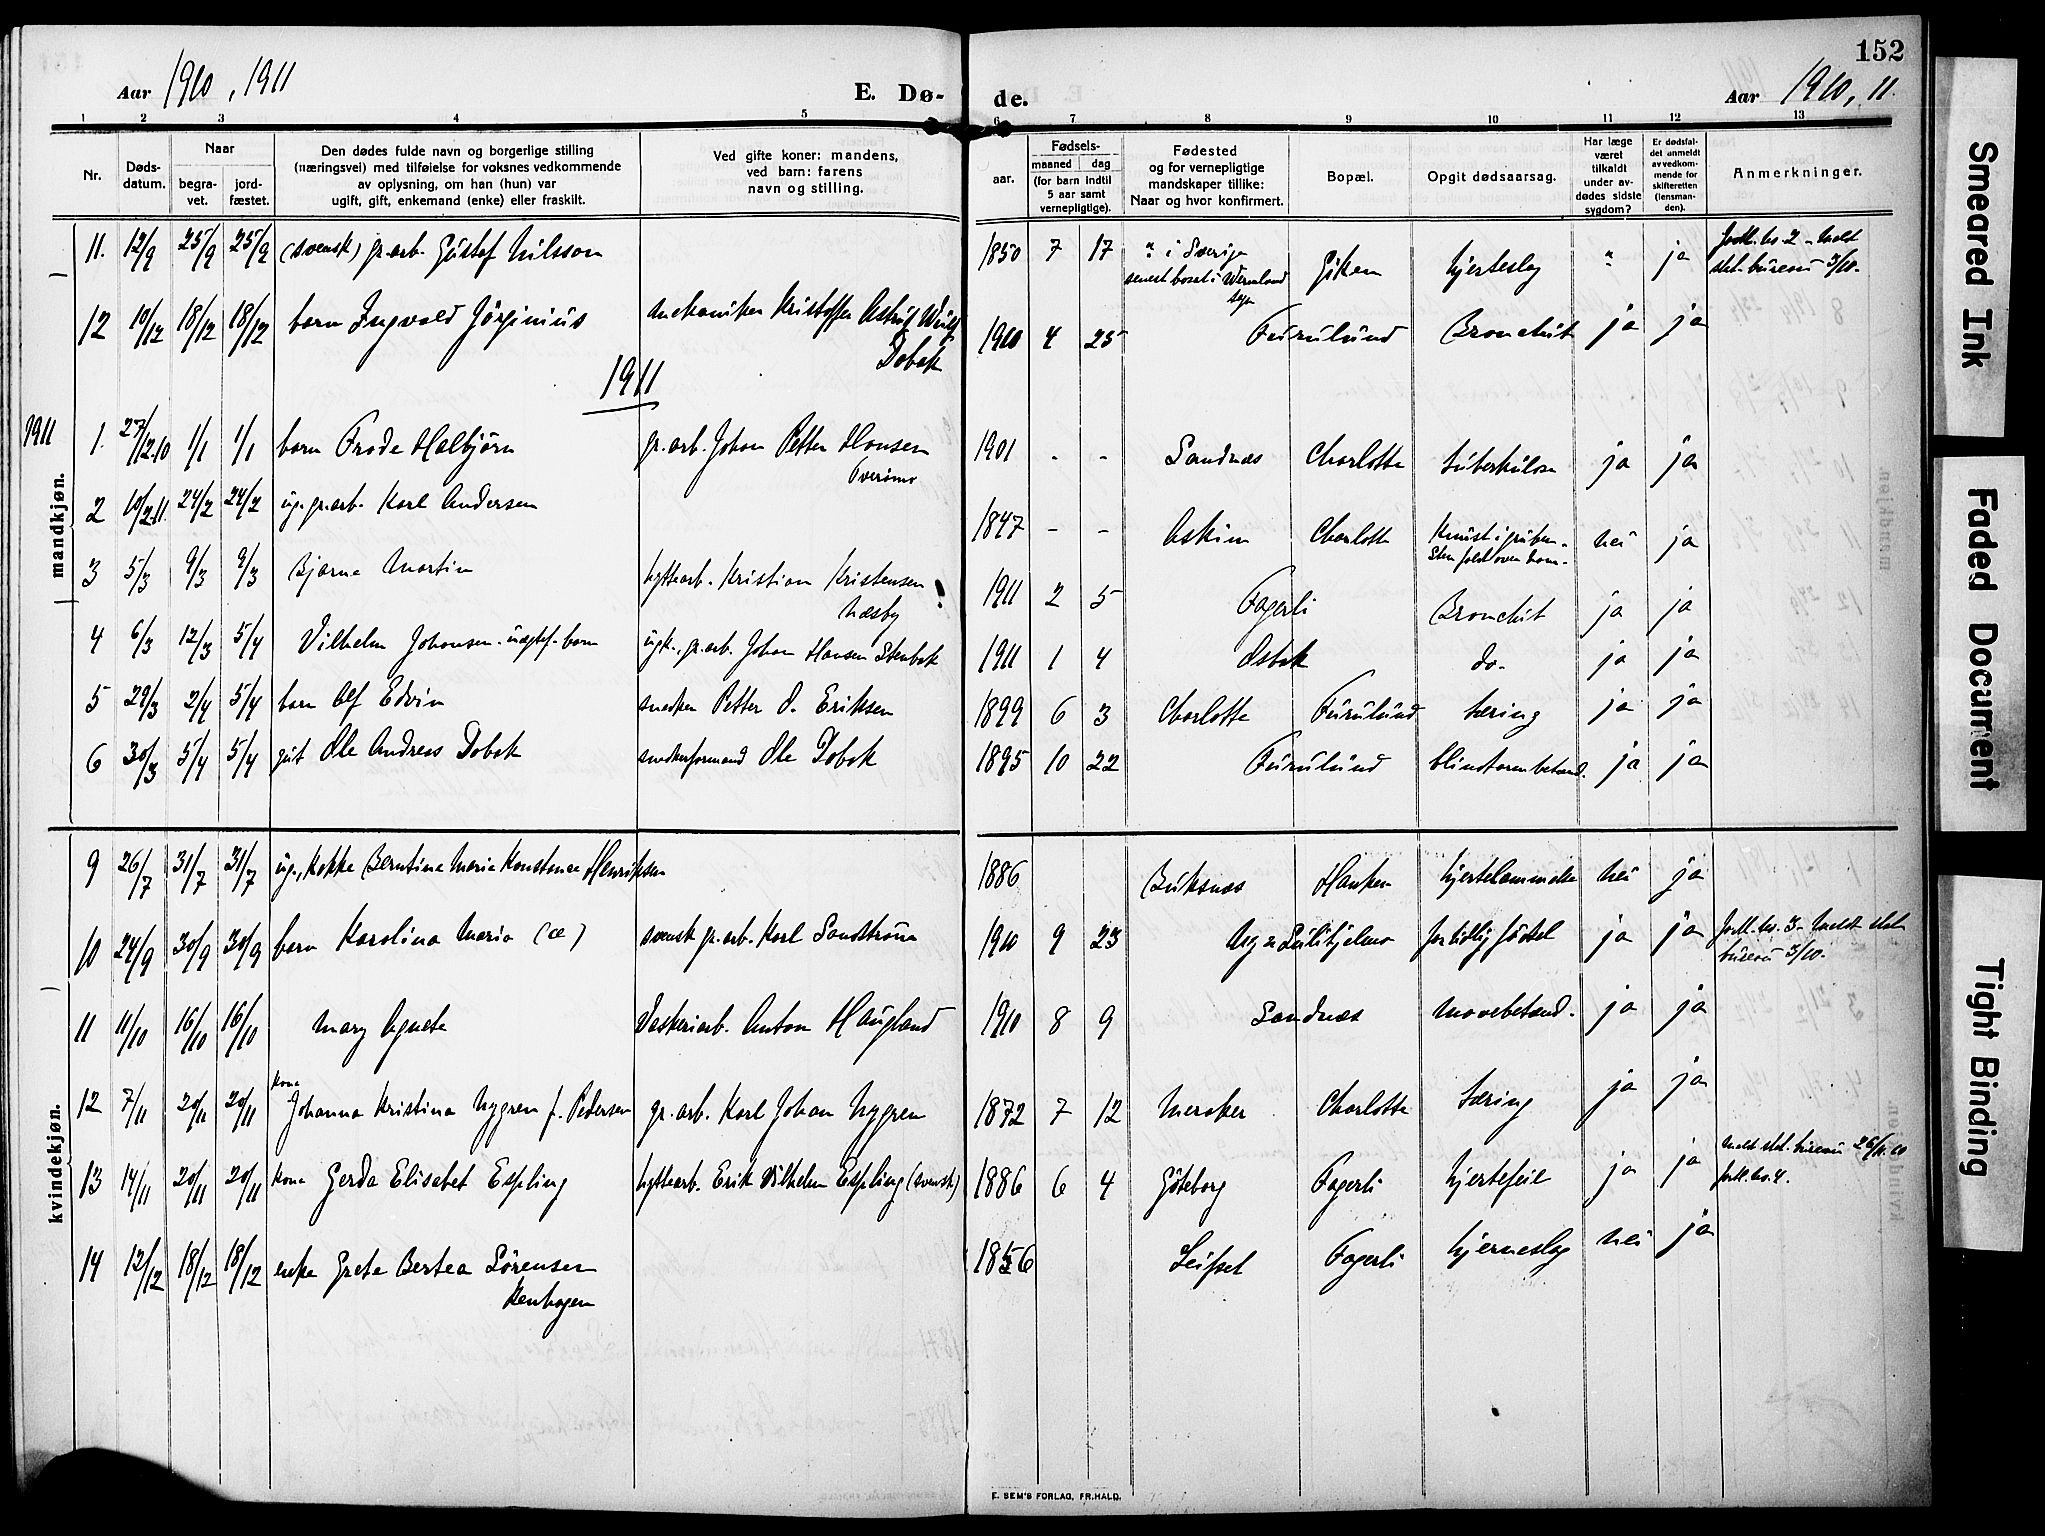 152
Aar 1910, 1911
E. Dø-
de.
Aar 1910, 11.
1 2 3 4 5 6 7 8 9 10 11 12 13
Nr.
Døds-
datum.
Naar
begra-
vet.
jord-
fæstet.
Den dødes fulde navn og borgerlige stilling
(næringsvei) med tilføielse for voksnes vedkommende
av oplysning, om han (hun) var
ugift, gift, enkemand (enke) eller fraskilt.
Ved gifte koner: mandens,
ved barn: farens
navn og stilling.
Fødsels-
aar.
maaned dag
(for barn indtil
5 aar samt
vernepligtige).
Fødested
og for vernepligtige
mandskaper tillike:
Naar og hvor konfirmert.
Bopæl.
Opgit dødsaarsag.
Har læge
været
tilkaldt
under av-
dødes sidste
sygdom?
Er dødsfal-
det anmeldt
av vedkom-
mende for
skifteretten
(lensman-
den).
Anmerkninger.
mandkjøn.
11. 12/9 25/9 25/9 (svensk) gr.arb. Gustaf Nilsson 1850 7 17 " i Sverige Giken hjerteslag " ja
senest bosat i Wermland
12 10/12 18/12 18/12 barn Ingvald Jørginius mekaniker Kristoffer
Dobak 1910 4 25 Furulund Bronchit ja ja
1911
1911
1. 27/12.10 1/1 1/1 barn Frode Halbjørn gr.arb. Johan Petter Hansen 1901 - - Sandnæs Charlotta tuberkulose ja ja
Tveråmo
2 10/2.11. 24/2 24/2 ug. gr.arb. Karl Andersen 1847 - - Askim Charlotta Knust i gruben. nei ja
3 5/3 9/3 9/3 Bjarne Martin hyttearb. Kristian Kristensen 1911 2 5 Fagerli Bronchit ja ja
Næsby
4 6/3 12/3 5/4 Vilhelm Johansen. uægtef. barn ugk., gr.arb. Johan Hansen Stenbak 1911 1 4 do. ja ja
5 29/3 2/4 5/4 barn Alf Edvin snedker Petter O. Eriksen 1899 6 3 Charlotta Furulund tæring ja ja
6 30/3 5/4 5/4 gut Ole Andreas Dobak snedkerformand Ole Dobak 1895 10 22 Furulund blindtarmbetænd. ja ja
kvindekjøn.
9 26/7 31/7 31/7 ug., kokke Berntine Marie Konstanse Henriksen 1886 Buksnæs Hanken hjertelammelse nei ja
10 24/9 30/9 30/9 barn Karolina Maria (æ) svensk gr.arb. Karl Sandstrøm 1910 9 23 Ny Sulitjelma for tidlig fødsel ja ja
11 11/10 16/10 16/10 Mary Agnete Vaskeriarb. Anton Haugland 1910 8 9 Sandnæs Mavebetænd. ja ja
12 7/11 20/11 20/11 Kone Johanna Kristina Nygren f. Pedersen gr.arb. Karl Johan Nygren 1872 7 12 Meraker Charlotta tæring ja ja
13 14/11 20/11 20/11 Kone Gerda Elisabet Espling hyttearb. Erik Vilhelm Espling (svensk) 1886 6 4 Göteborg Fagerli hjertefeil ja ja
14 12/12 18/12 18/12 enke Grete Bertea Sørensen 1856 Leifset Fagerli hjerneslag nei ja
E. SEM'S FORLAG, FR.HALD.
Smeared Ink
Faded Document
Tight Binding